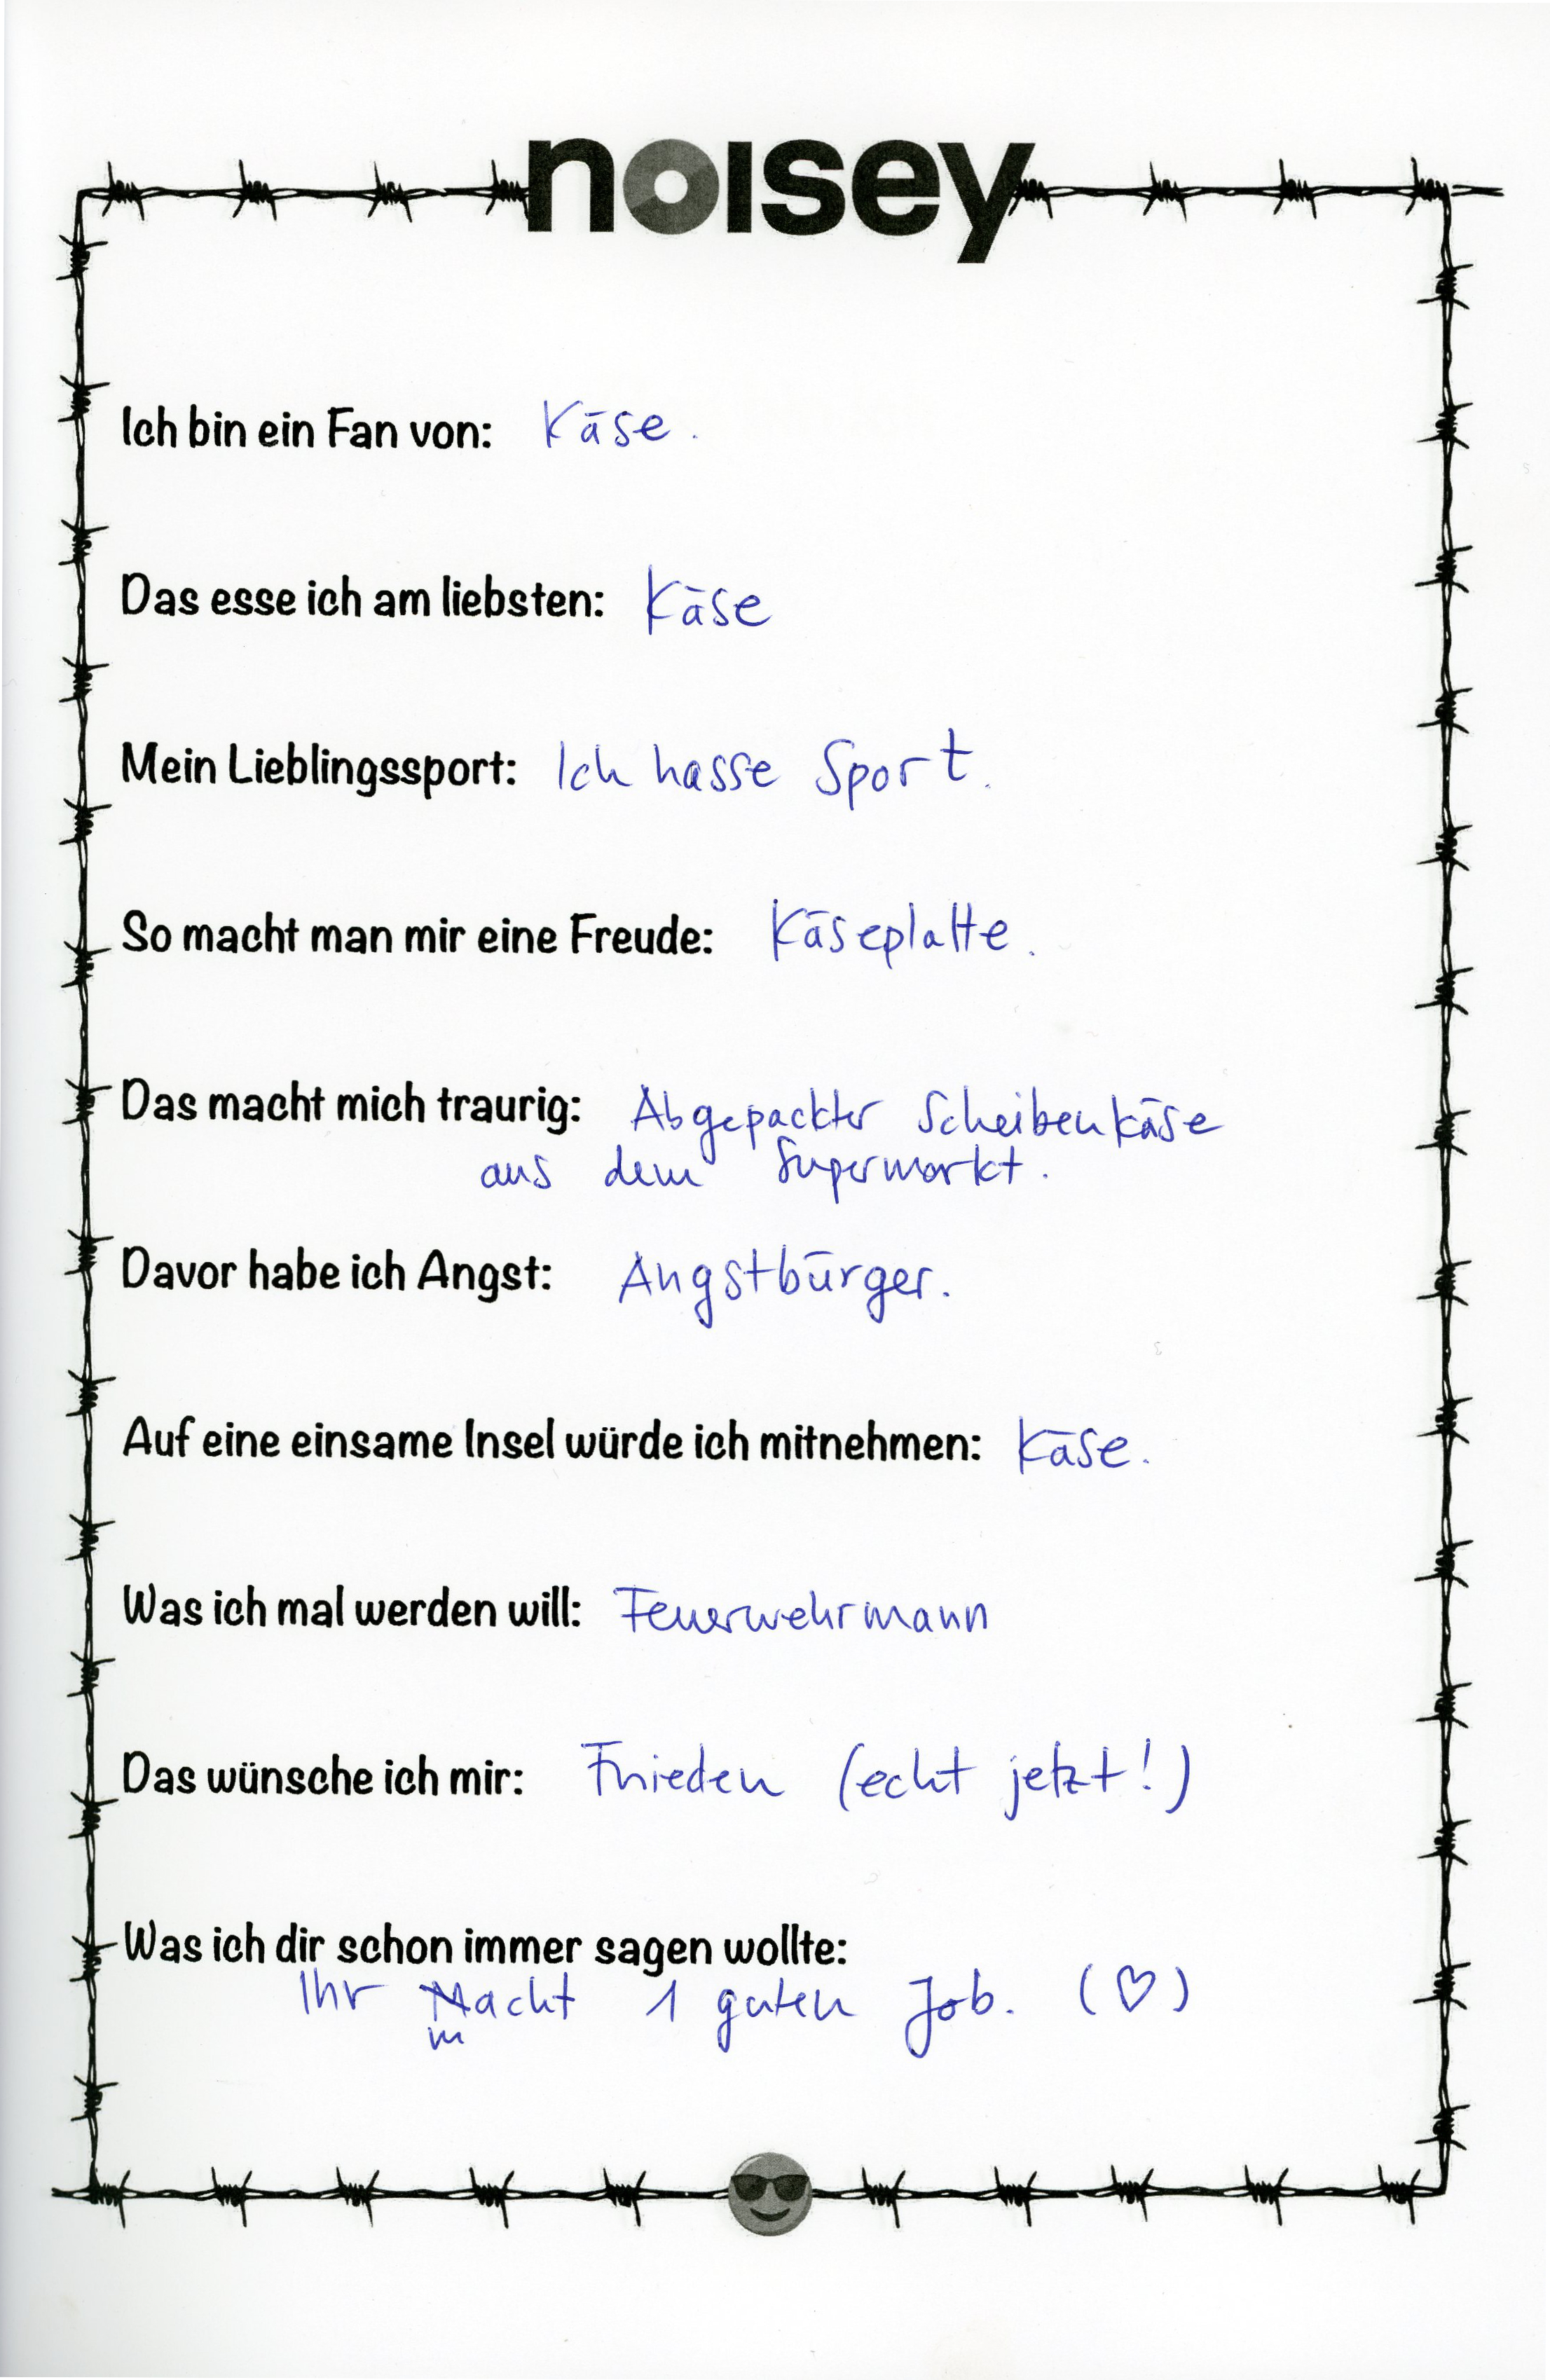 noisey
Ich bin ein Fan von: Käse.
Das esse ich am liebsten: Käse
Mein Lieblingssport: Ich hasse Sport.
So macht man mir eine Freude: Käseplatte.
Das macht mich traurig: Abgepackter Scheibenkäse
aus dem Supermarkt.
Davor habe ich Angst: Angstbürger.
Auf eine einsame Insel würde ich mitnehmen: Käse.
Was ich mal werden will: Feuerwehrmann
Das wünsche ich mir: Frieden (echt jetzt!)
Was ich dir schon immer sagen wollte:
Ihr macht 1 guten Job. (♡)